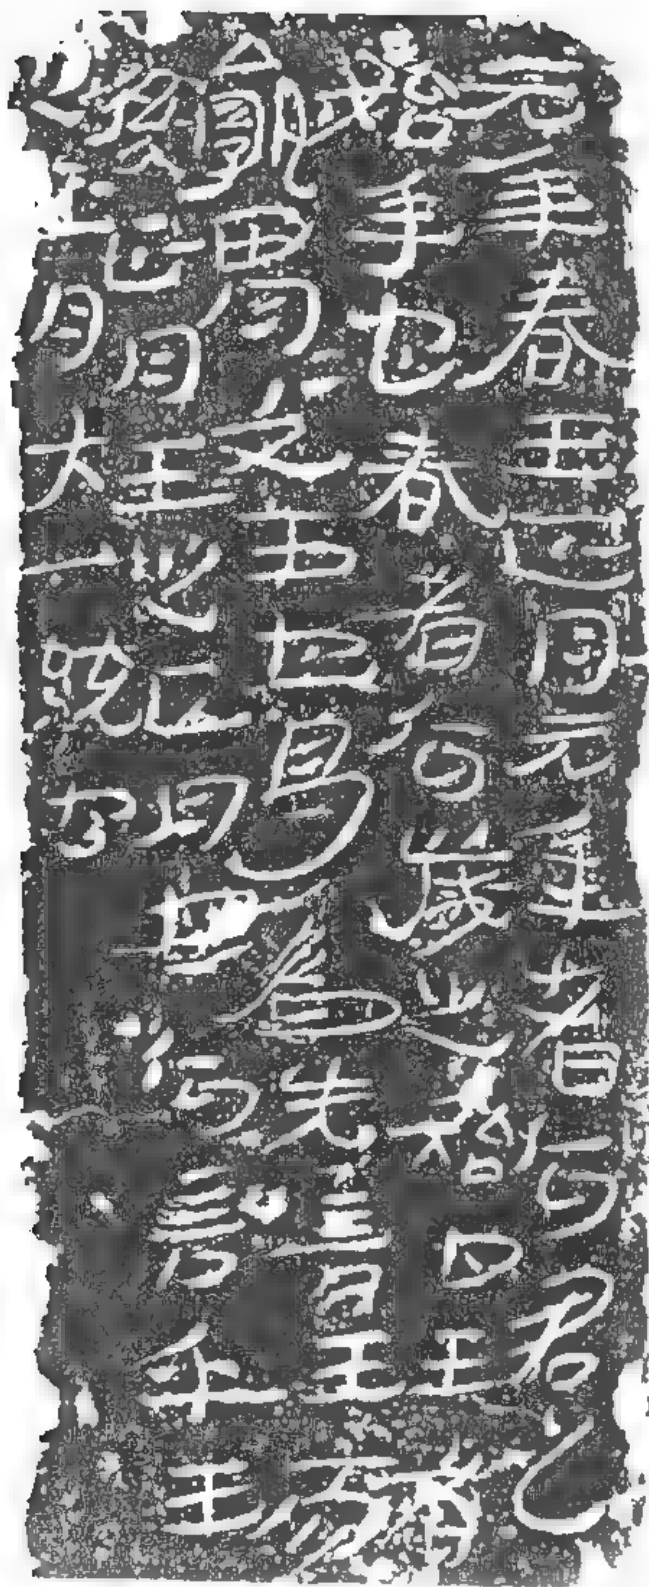 元年春王正月元年者何君之
始年也春者何歲之始也王者
孰胃=文王也曷為先言王而
後正月王之正月也何言乎王
之正月大一統也